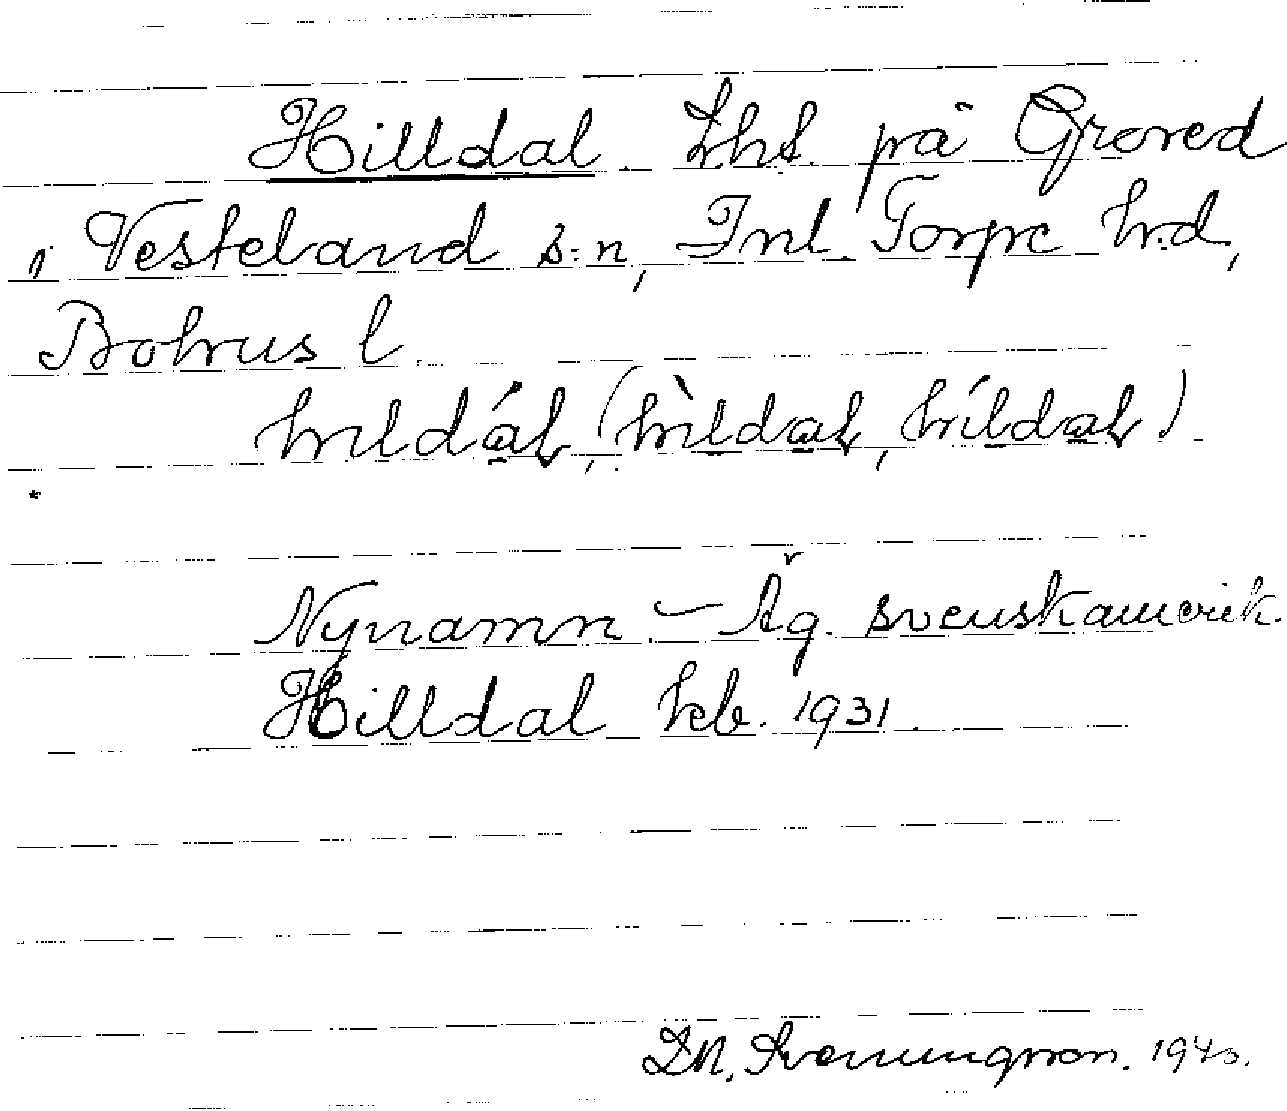 Hilldal. Lhs. på Groved
i Vesteland s:n, Inl. Torpe hd,
Bohus l.
hildál, (hìldal, híldal)
Nynamn. – Äg. svenskamerik.
Hilldal kb. 1931.
D.N. Svenungsson. 1943.